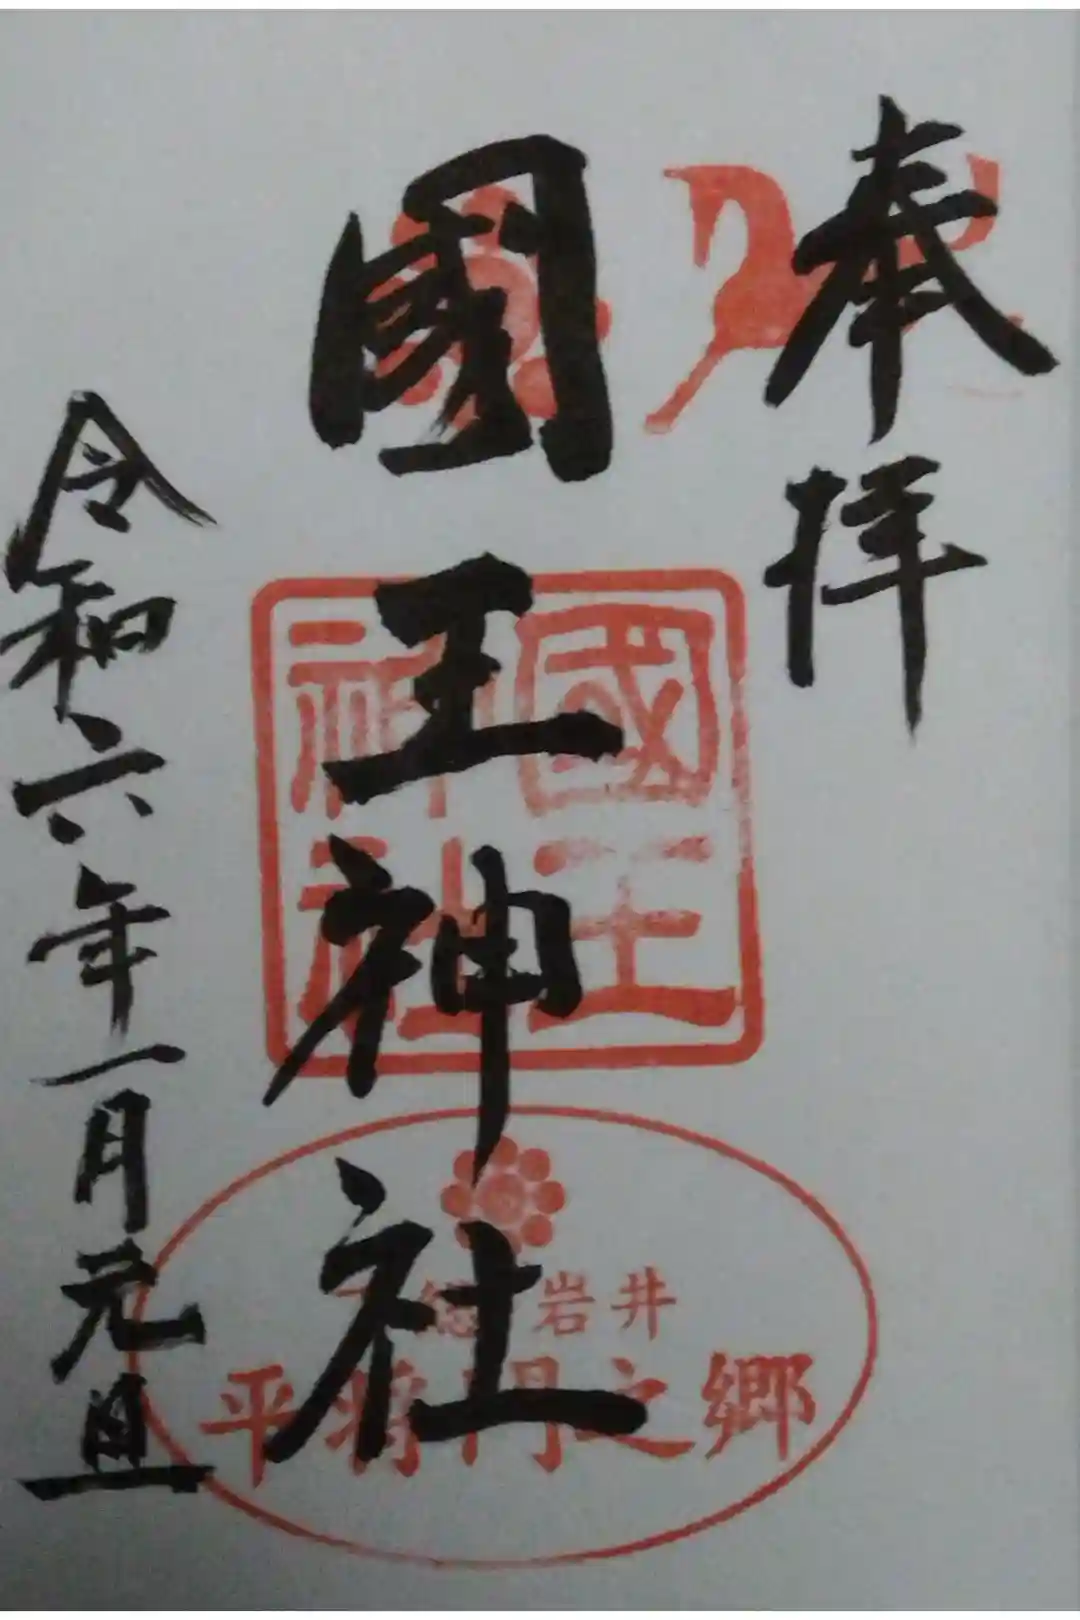 奉拝
國王神社
令和六年一月元旦
國王
神社
総 岩井
平将門之郷